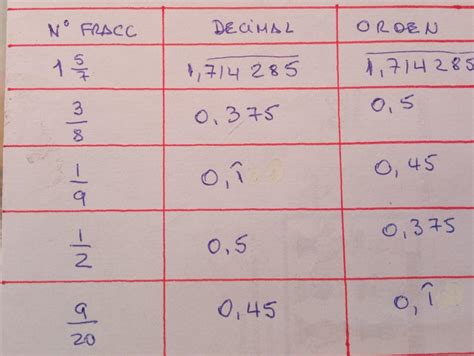 Nº FRACC DECIMAL ORDEN
1 5/7 1,714285 1,714285
3/8 0,375 0,5
1/9 0,1̂ 0,45
1/2 0,5 0,375
9/20 0,45 0,1̂